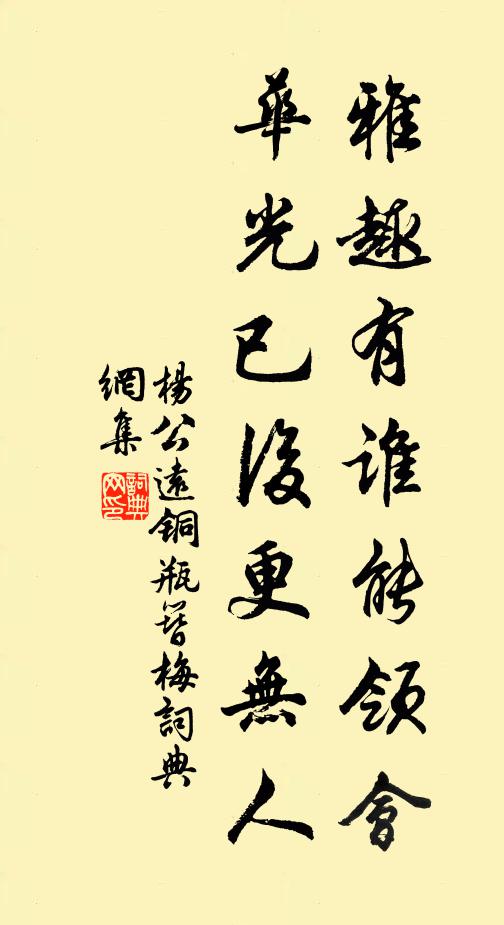 雅趣有谁能領會
華光已後更無人
楊公遠銅瓶簪梅詞典
網集
詞典
网印